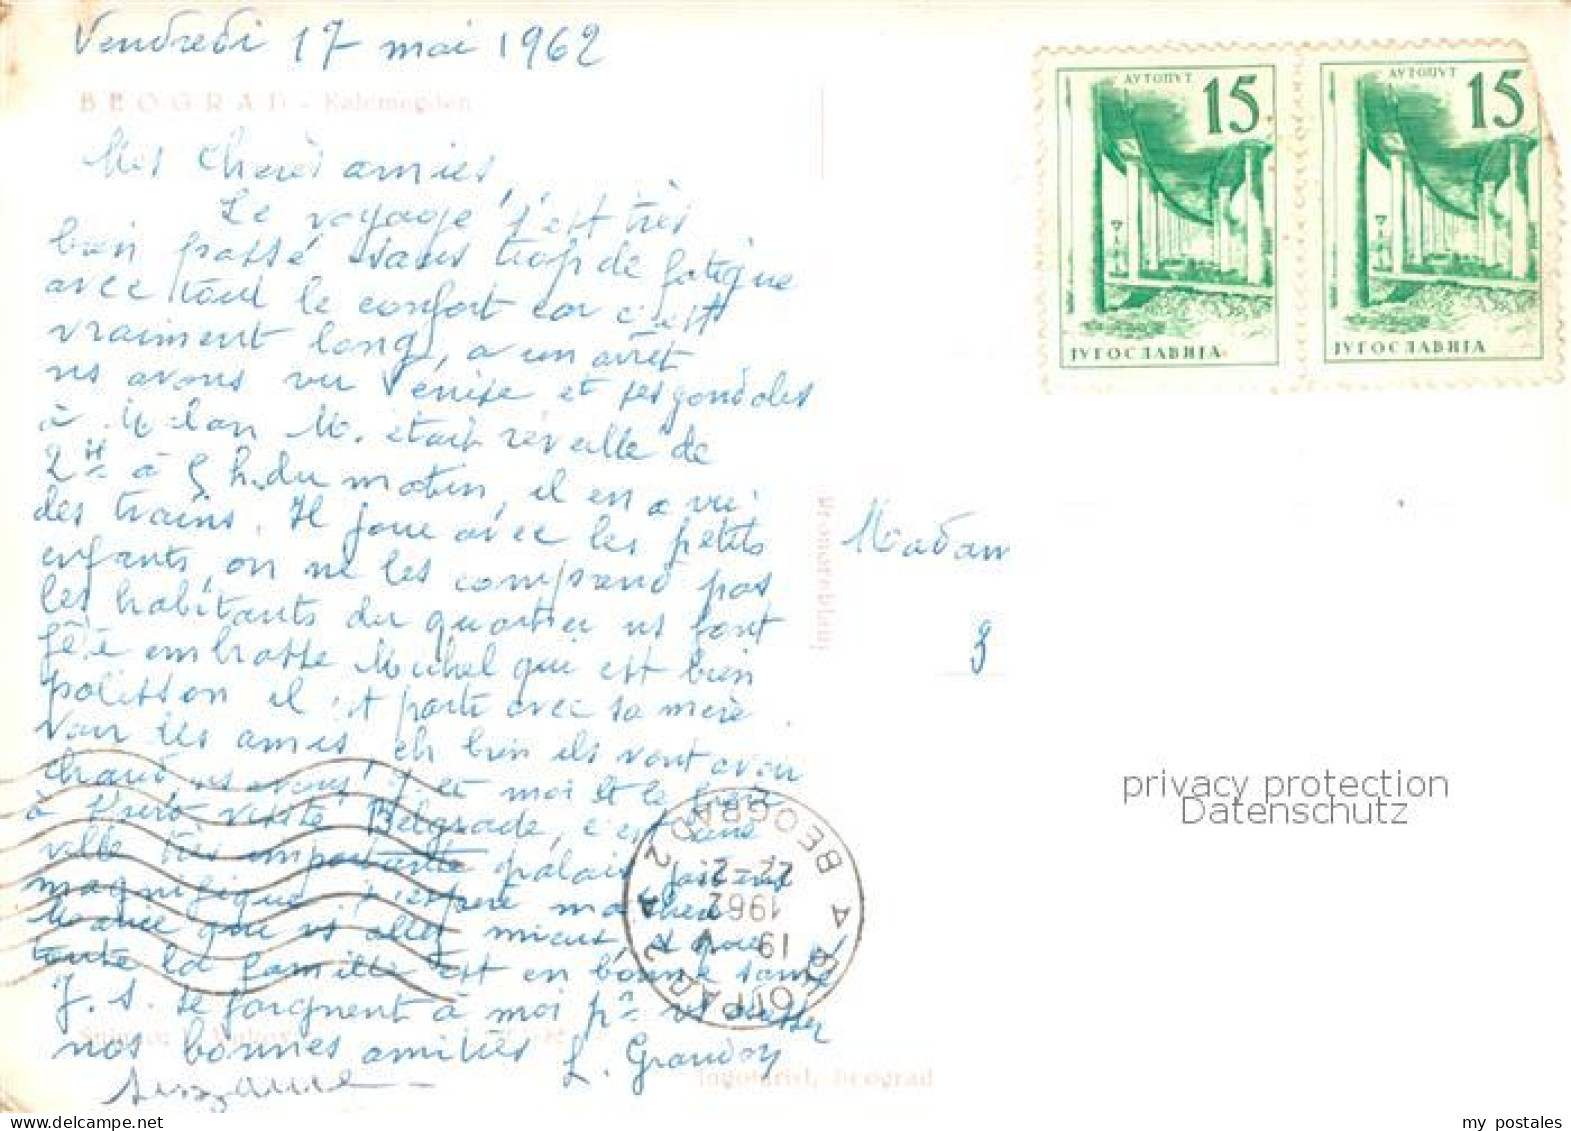 Vendredi 17 mai 1962
BEOGRAD - Kalemegdan
Mes chères amies
Le voyage s'est très
bien passé sans trop de fatigue
avec tout le confort car c'est
vraiment long, a un arrêt
ns avons vu Vénise et ses gondoles
à Milan M. était réveillé de
2 H à 5 h. du matin, il en a vu
des trains. Il joue avec les petits
enfants, on ne les comprend pas
les habitants du quartier ns font
fête embrasse Michel qui est bien
polisson il est parti avec sa mère
voir les amis, eh bien ils vont avoir
chaud ns avons J. et moi et le
à visité Belgrade, c'est une
ville très importante palais
magnifique j'espère ma chère
que vs allez mieux, et que
toute la famille est en bonne santé
J. S. se joignent à moi pr vs
nos bonnes amitiés L. Grandoy
Suzanne
АУТОПУТ
15
ЈУГОСЛАВИЈА
АУТОПУТ
15
ЈУГОСЛАВИЈА
Madam
3
BEOGRAD 2
БЕОГРАД 2
22-2
1962
19
privacy protection
Datenschutz
Beograd
my postales